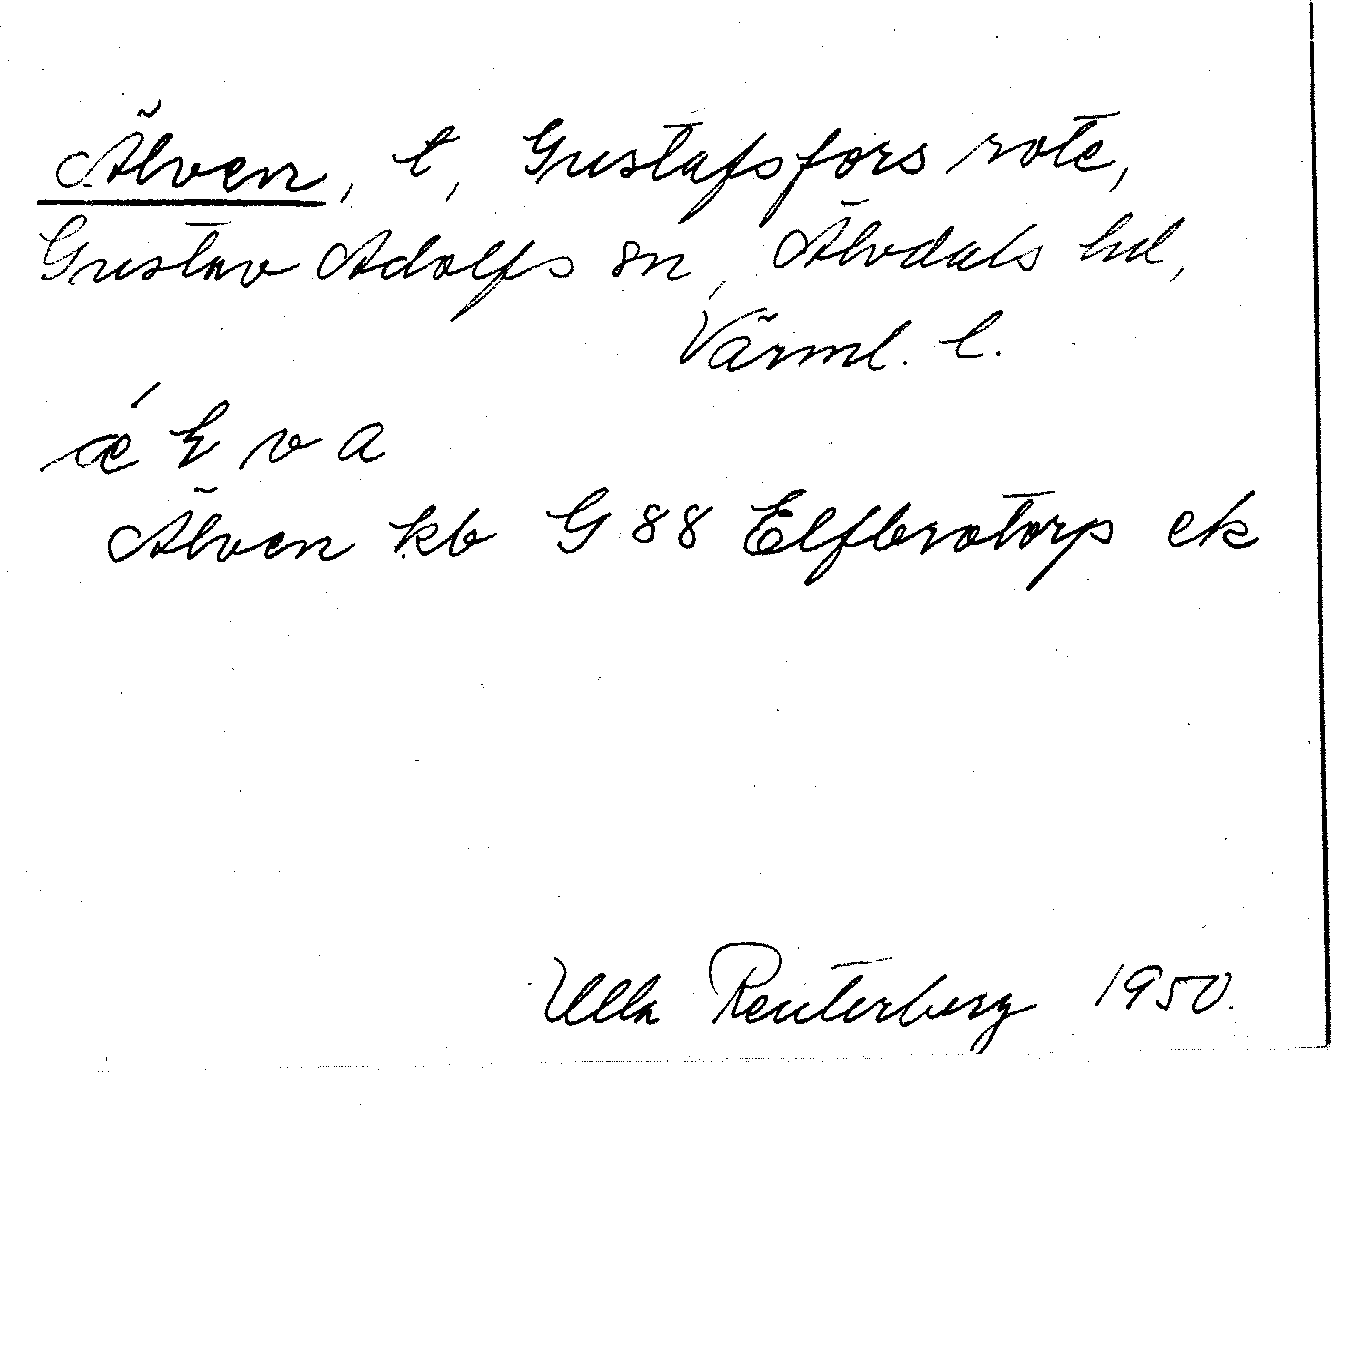 Älven, t, Gustafsfors rote,
Gustav Adolfs sn, Älvdals hd,
Värml. l.
Älven kb G 88 Elfbrotorp ek
Ulla Reuterberg 1950.